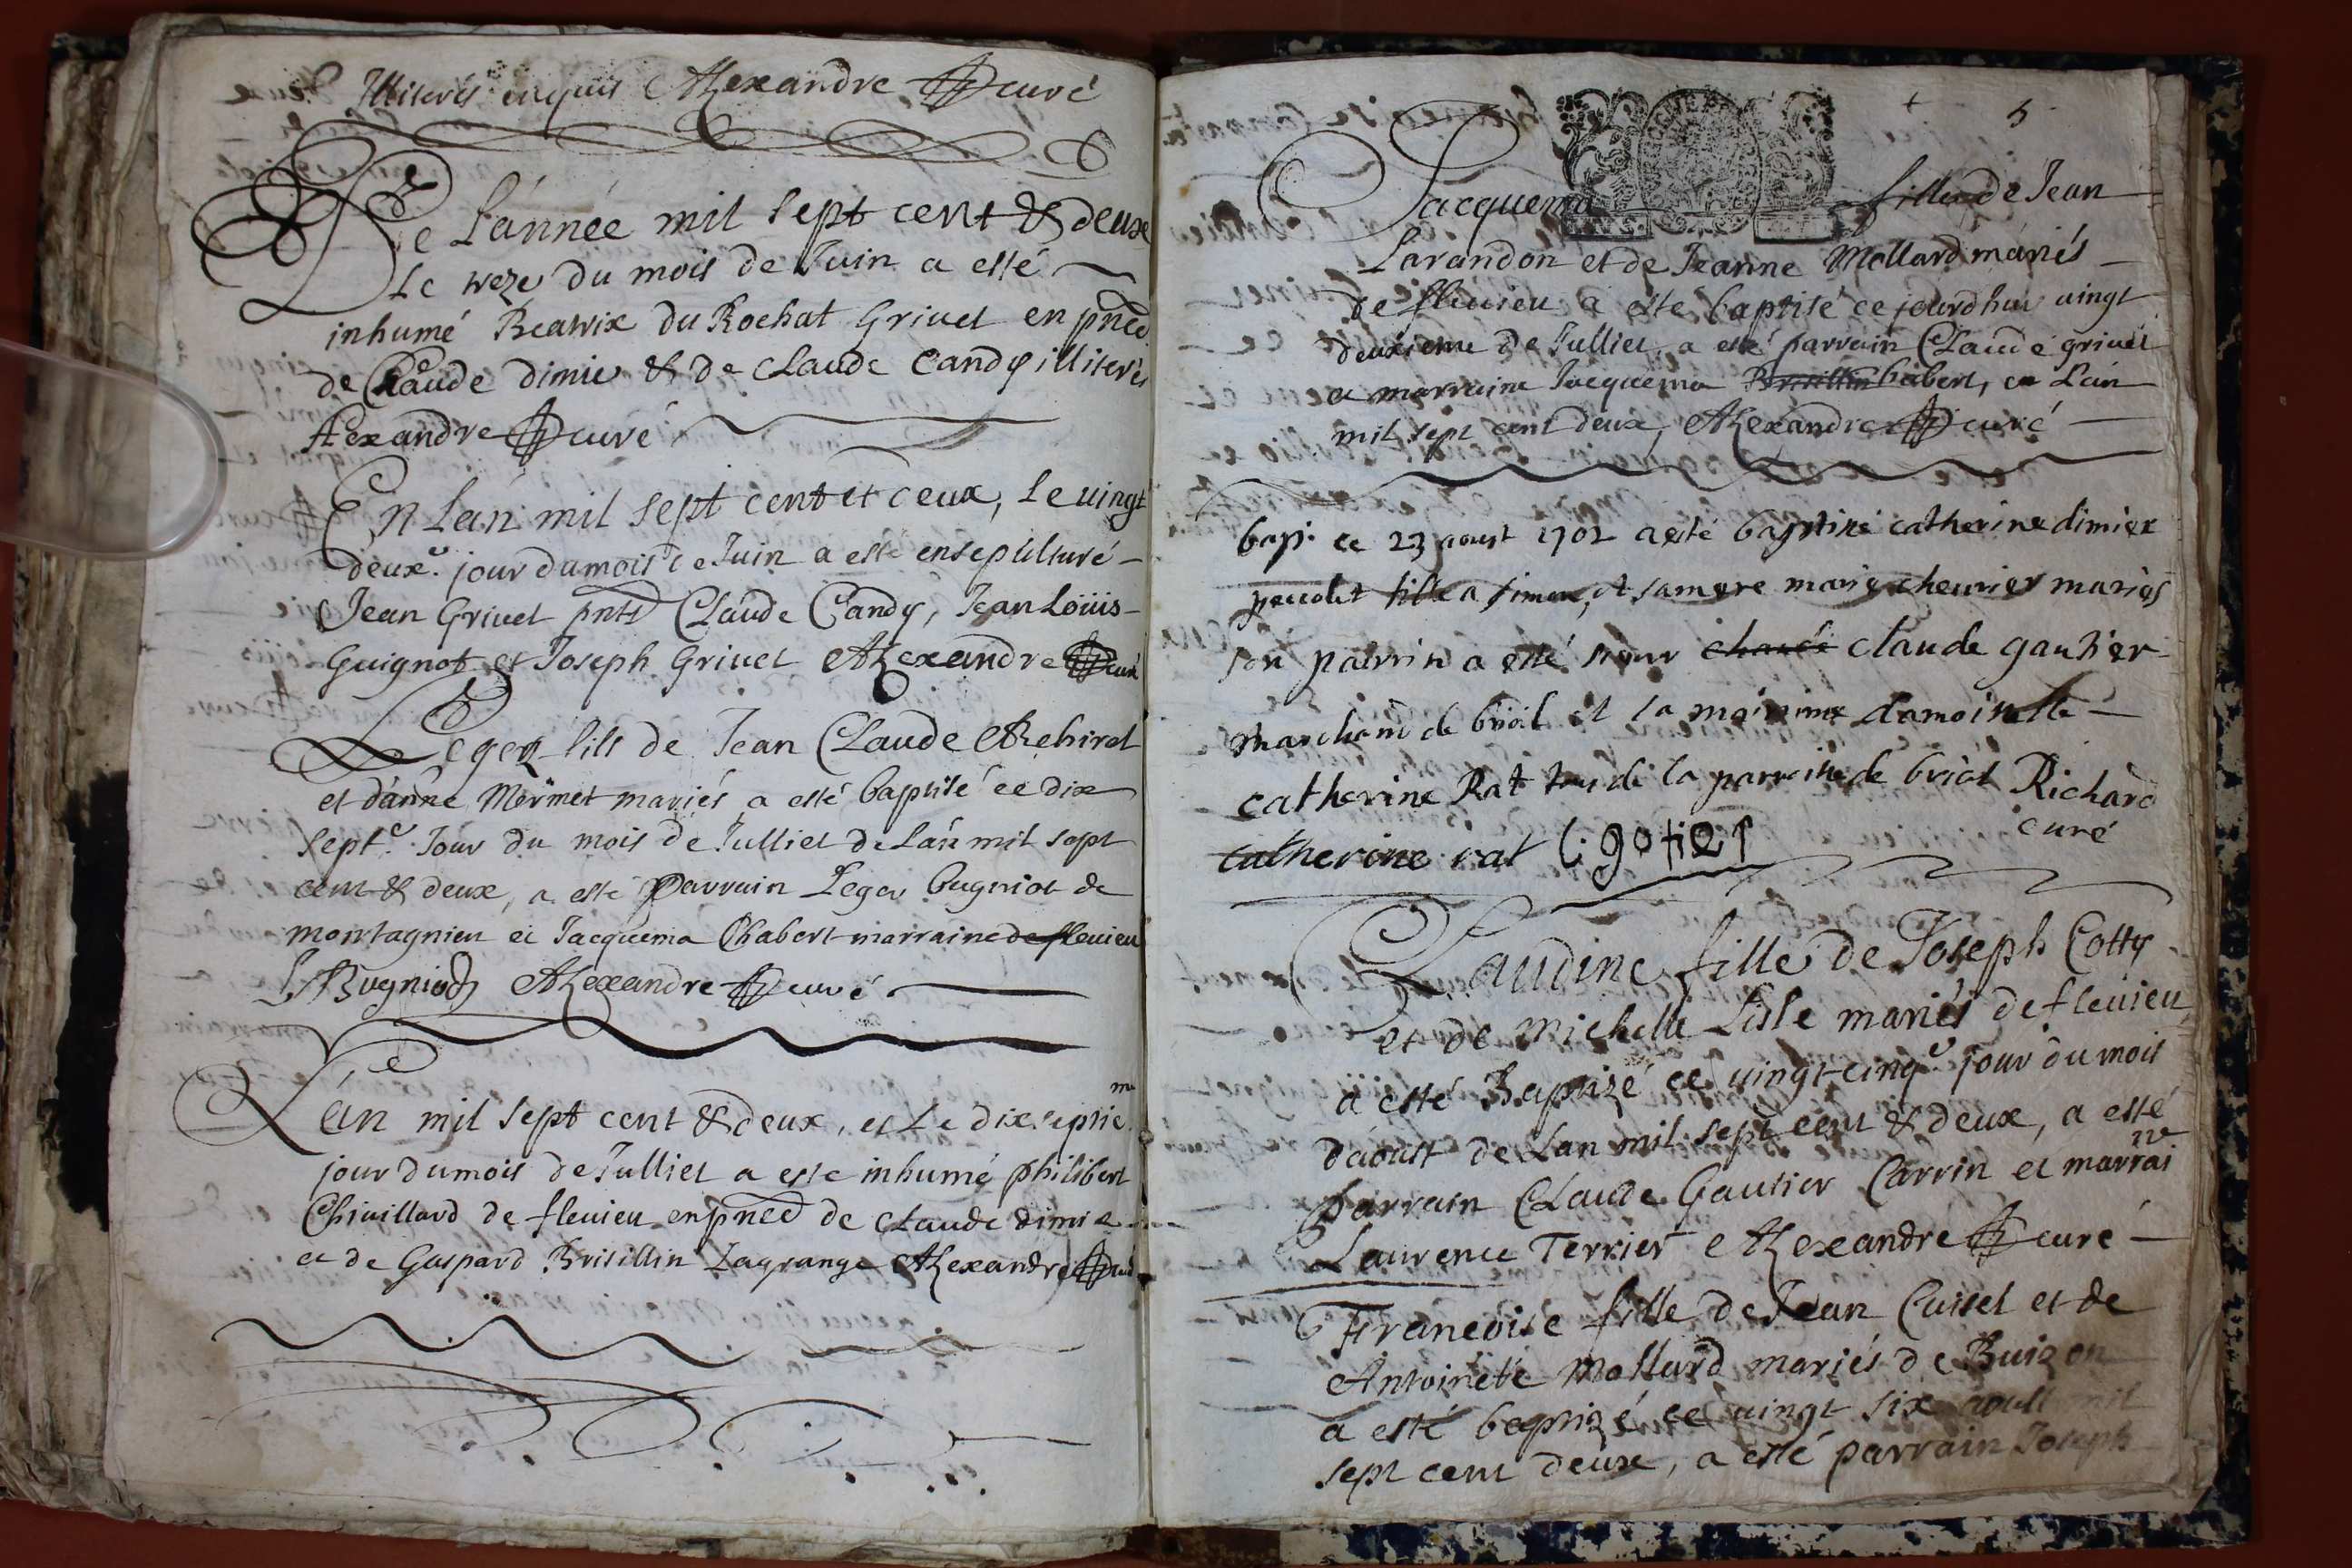 Illiterés enquis Alexandre curé
De L'année mil sept cent & deux
Le treze du mois de Juin a esté
inhumé Beatrix du Rochat Grivet en pnce
de Claude dimier & de Claude Candy illiterés
Alexandre curé
En L'an mil sept cent et deux, Le vingt
deuxe. jour du mois de Juin a esté ensepulturé
Jean Grivet pnts Claude Candy, Jean Loüis
Guignot et Joseph Grivet Alexandre curé
Leger fils de Jean Claude
et d'anne Mermet mariés a esté baptisé ce dix
septe. Jour du mois de Julliet de L'an mil sept
cent & deux, a esté Parrain Leger bugniot de
montagnieu et Jacquema Chabert marraine de flevieu
L Bugniod Alexandre curé
L'an mil sept cent & deux, et Le dixseptiem
jour du mois de Julliet a esté inhumé philibert
Chivillard de flevieu en pnce de Claude dimie
et de Gaspard Brisillin Lagrange Alexandre curé
5
Jacquema fille de Jean
Larandon et de Jeanne Mollard mariés
de flevieu a esté baptisé ce jourdhui vingt
deuxieme de Julliet, a esté parrain Claude grivet
et marraine Jacquema Brisillin babert, en L'an
mil sept cent deux, Alexandre curé
bap. ce 23 aoust 1702 a esté baptisée catherine dimier
fille a simon, et sa mere marie chevrier mariés
son parrin a esté sieur claude gautier
marchand de briol et la mairine damoiselle
catherine Rat tous de la parroisse de briol Richard
curé
catherine rat C. gotier
Claudine fille de Joseph Cotty
et de Michelle Lisle mariés de flevieu
a esté Baptizé ce vingt-cinqe. jour du mois
d'aoust de Lan mil sept cent & deux, a esté
parrain Claude Gautier Carrin et marraine
Laurence Terrier Alexandre curé
Francoise fille de Jean Cuisel et de
Antoinette Mollard mariés de Buizon
a esté baptizé ce vingt six aoust mil
sept cent deux, a esté parrain Joseph